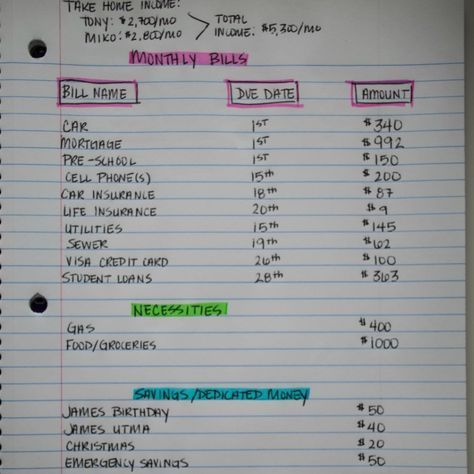 TAKE HOME INCOME:
TONY: $2,700/MO
MIKO: $2,800/MO
TOTAL INCOME: $5,300/MO
MONTHLY BILLS
BILL NAME DUE DATE AMOUNT
CAR 1ST $340
MORTGAGE 1ST $992
PRE-SCHOOL 1ST $150
CELL PHONE(S) 15th $200
CAR INSURANCE 18th $87
LIFE INSURANCE 20th $9
UTILITIES 15th $145
SEWER 19th $62
VISA CREDIT CARD 26th $100
STUDENT LOANS 28th $363
NECESSITIES
GAS $400
FOOD/GROCERIES $1000
SAVINGS/DEDICATED MONEY
JAMES BIRTHDAY $50
JAMES UTMA $40
CHRISTMAS $20
EMERGENCY SAVINGS $50